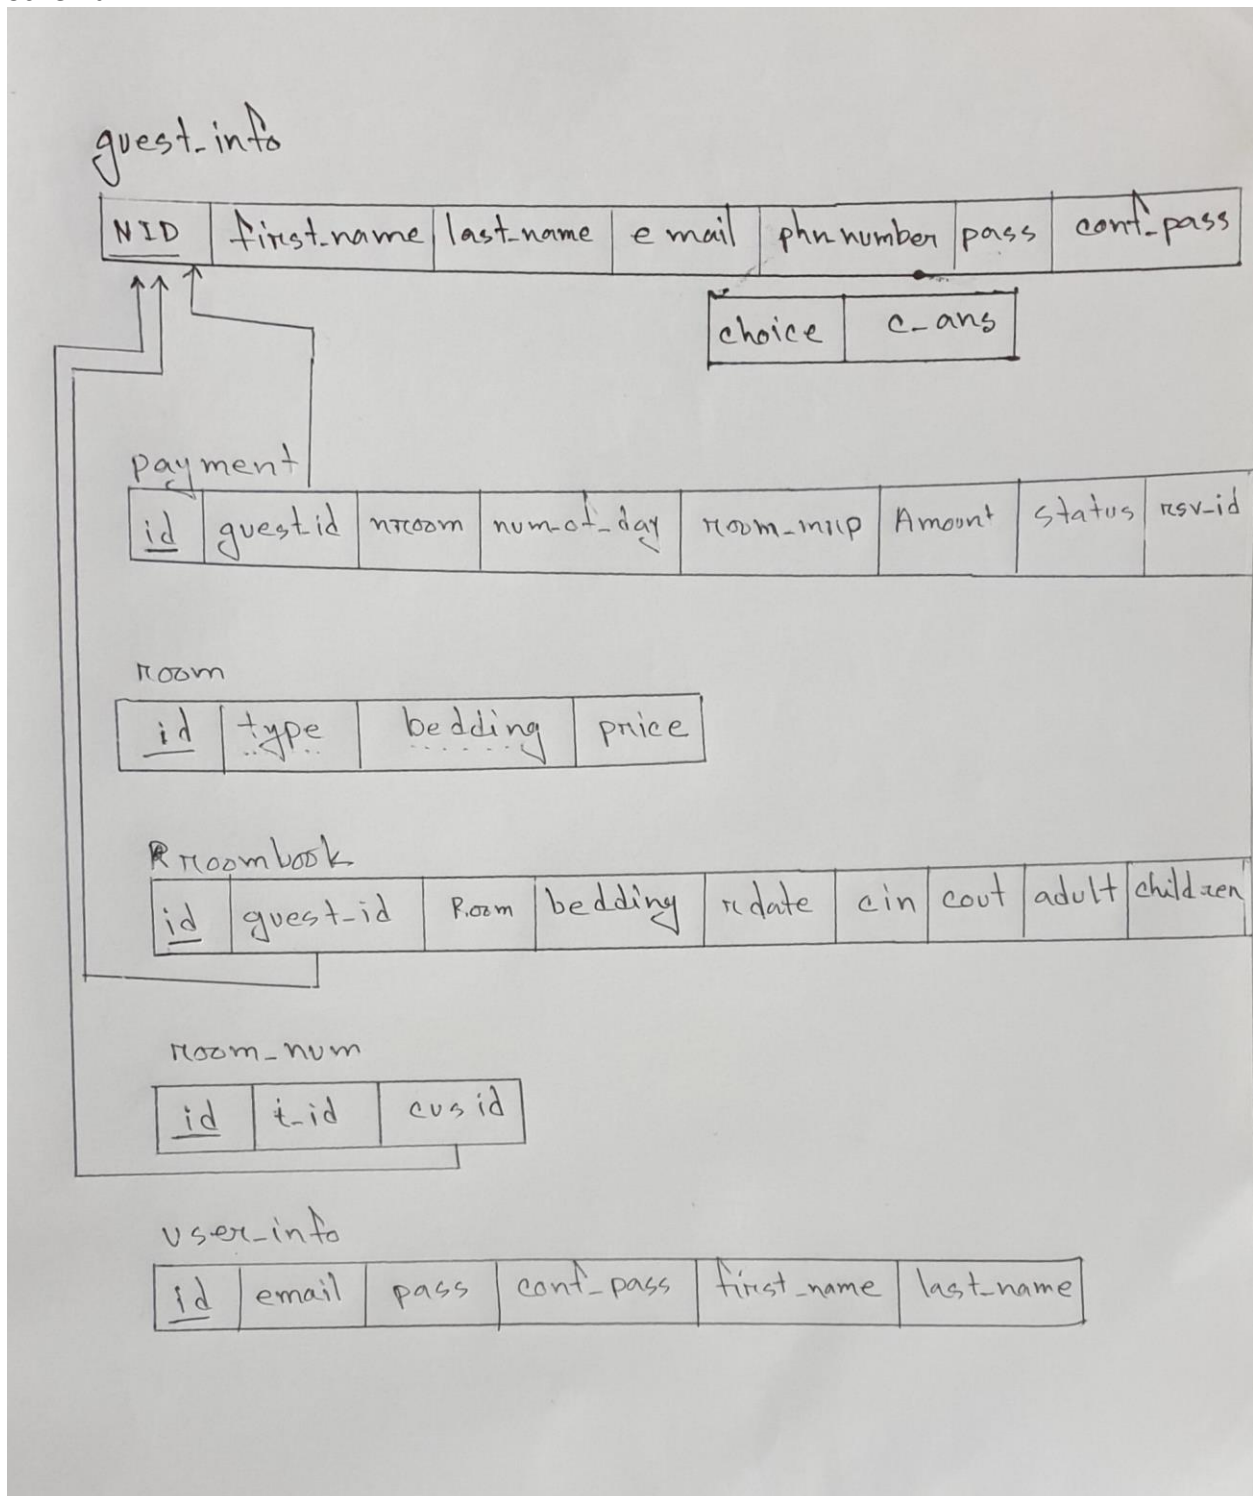 guest_info
NID first_name last_name email phn number pass conf_pass
choice c_ans
payment
id guest_id nroom num_of_day room_mrp Amount status rsv_id
room
id type bedding price
roombook
id guest_id Room bedding rdate cin cout adult children
room_num
id cusid
user_info
id email pass conf_pass first_name last_name